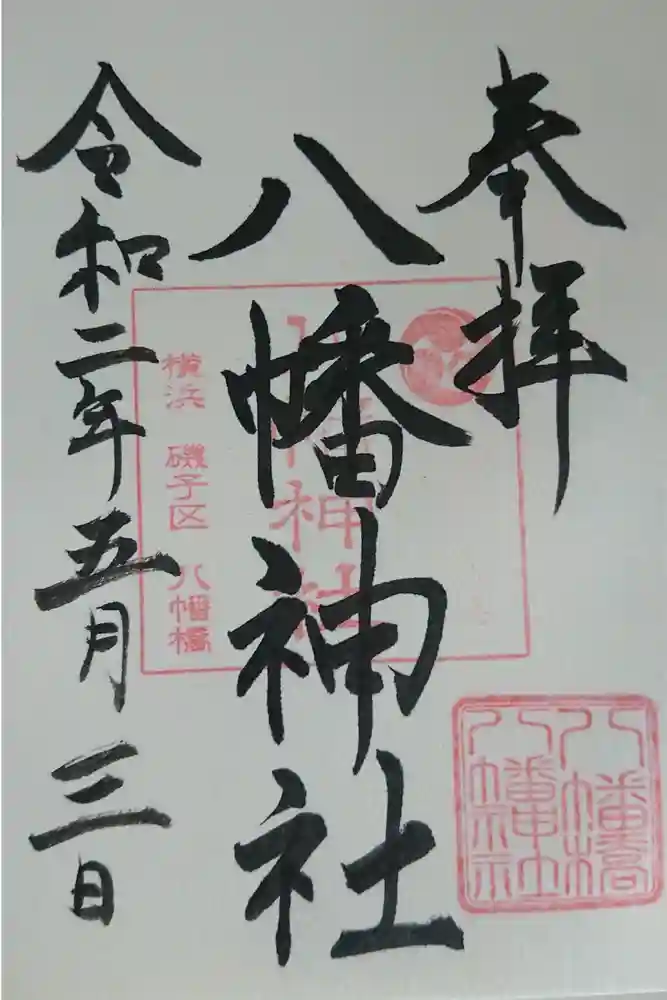 奉拝
八幡神社
令和二年五月三日
八幡神社
横浜 磯子区 八幡橋
八幡橋
八幡神社